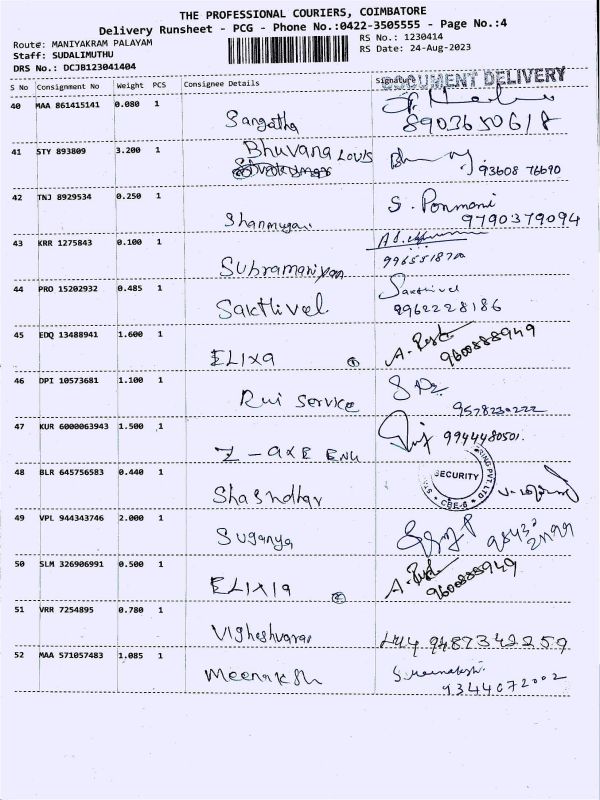 THE PROFESSIONAL COURIERS, COIMBATORE
Delivery Runsheet - PCG - Phone No.:0422-3505555 - Page No.:4
Route: MANIYAKRAM PALAYAM
RS No.: 1230414
Staff: SUDALIMUTHU
RS Date: 24-Aug-2023
DRS No.: DCJB123041404
S No Consignment No Weight PCS Consignee Details Signature
DOCUMENT DELIVERY
40 MAA 861415141 0.080 1 Sangatha
8903650618
41 STY 893809 3.200 1 Bhuvana Louis
93608 76690
42 TNJ 8929534 0.250 1 Shanmugan S. Ponmani
9790379094
43 KRR 1275843 0.100 1 Subramaniyan
9965518700
44 PRO 15202932 0.485 1 Sakthivel Sakthivel
9962228186
45 EDQ 13488941 1.600 1 ELIXA ①
9600888949
46 DPI 10573681 1.100 1 Rui Service
9578230222
47 KUR 6000063943 1.500 1 Z - AXE ENG 9944480501.
48 BLR 645756583 0.440 1 Shashdhar
SECURITY
CBE-6
PVT LTD
49 VPL 944343746 2.000 1 Suganya
50 SLM 326906991 0.500 1 ELIXIA ②
9600888949
51 VRR 7254895 0.780 1 Vigheshvaran 9487342259
52 MAA 571057483 1.085 1 Meenaksh S. Meenakshi
9344072002